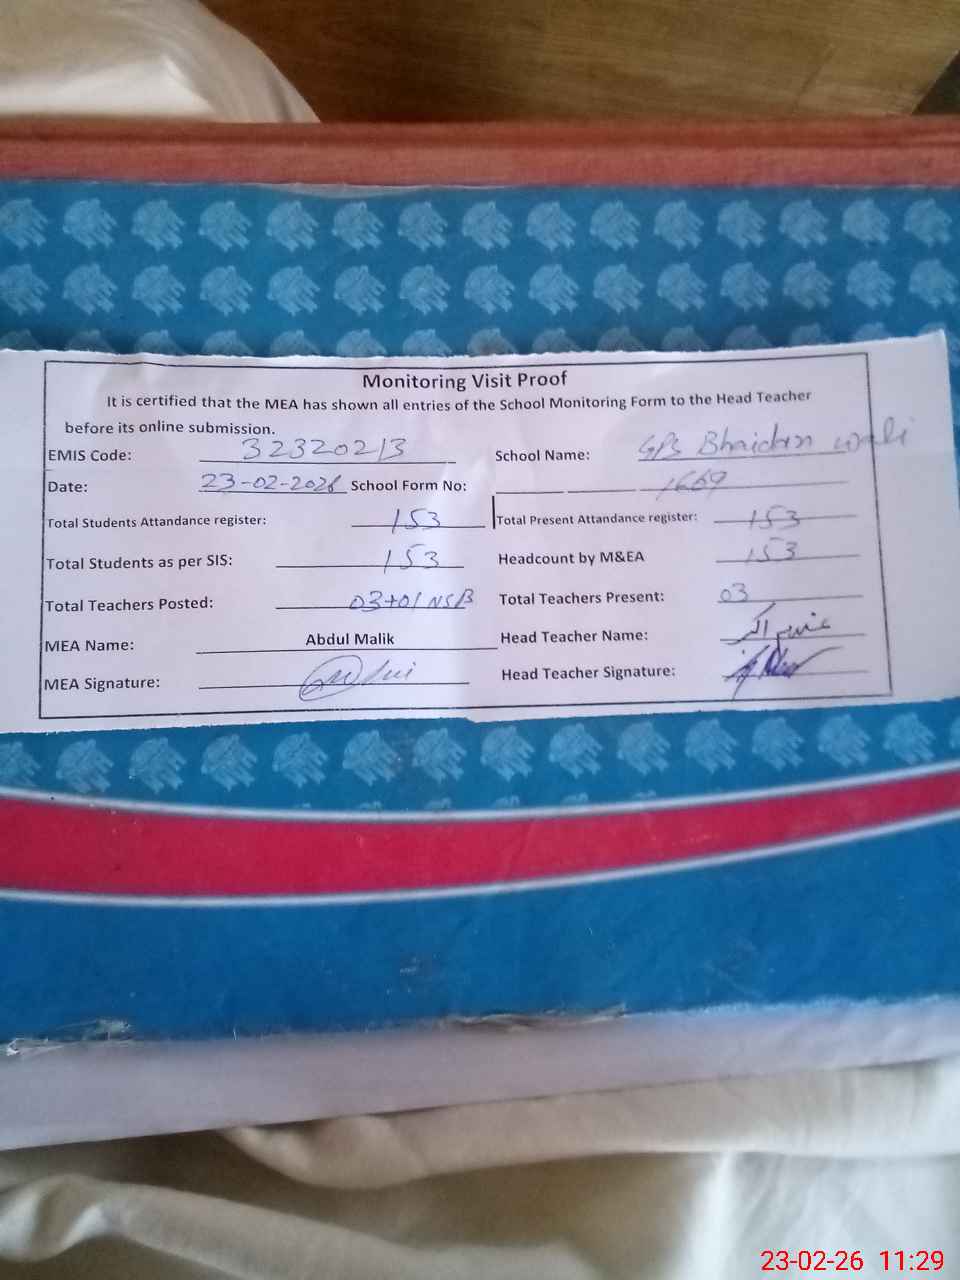 Monitoring Visit Proof
It is certified that the MEA has shown all entries of the School Monitoring Form to the Head Teacher
before its online submission.
EMIS Code: 32320213 School Name: GPS Bhaidan wali
Date: 23-02-2026 School Form No: 1669
Total Students Attandance register: 153 Total Present Attandance register: 153
Total Students as per SIS: 153 Headcount by M&EA 153
Total Teachers Posted: 03+01 NSB Total Teachers Present: 03
MEA Name: Abdul Malik Head Teacher Name:
MEA Signature: Head Teacher Signature:
23-02-26 11:29